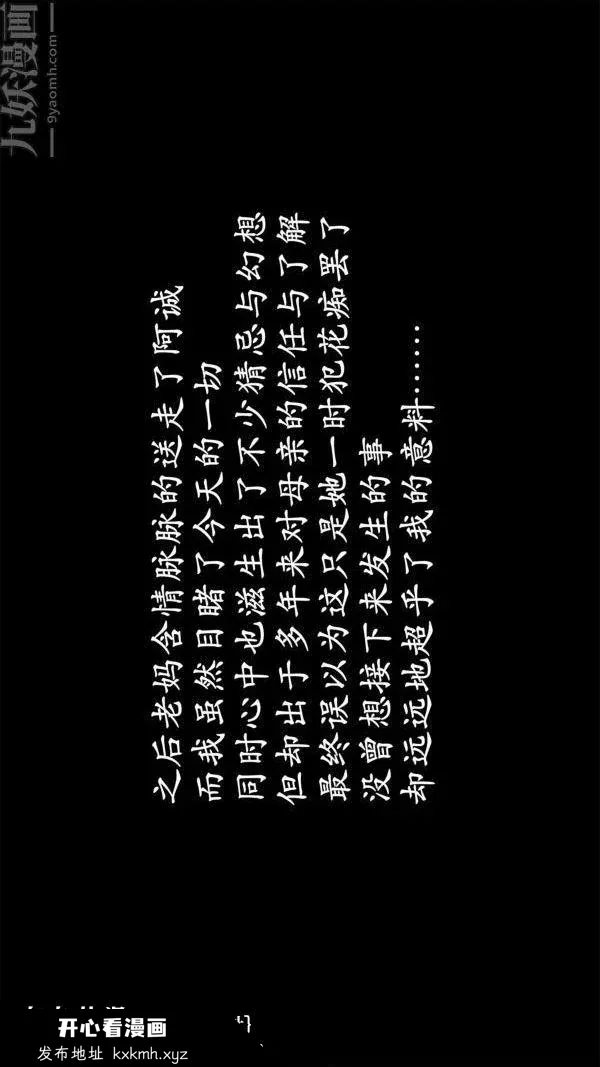 九妖漫画
9yaomh.com
之后老妈含情脉脉的送走了阿诚
而我虽然目睹了今天的一切
同时心中也滋生出了不少猜忌与幻想
但却出于多年来对母亲的信任与了解
最终误以为这只是她一时犯花痴罢了
没曾想接下来发生的事
却远远地超乎了我的意料……
开心看漫画
发布地址 kxkmh.xyz